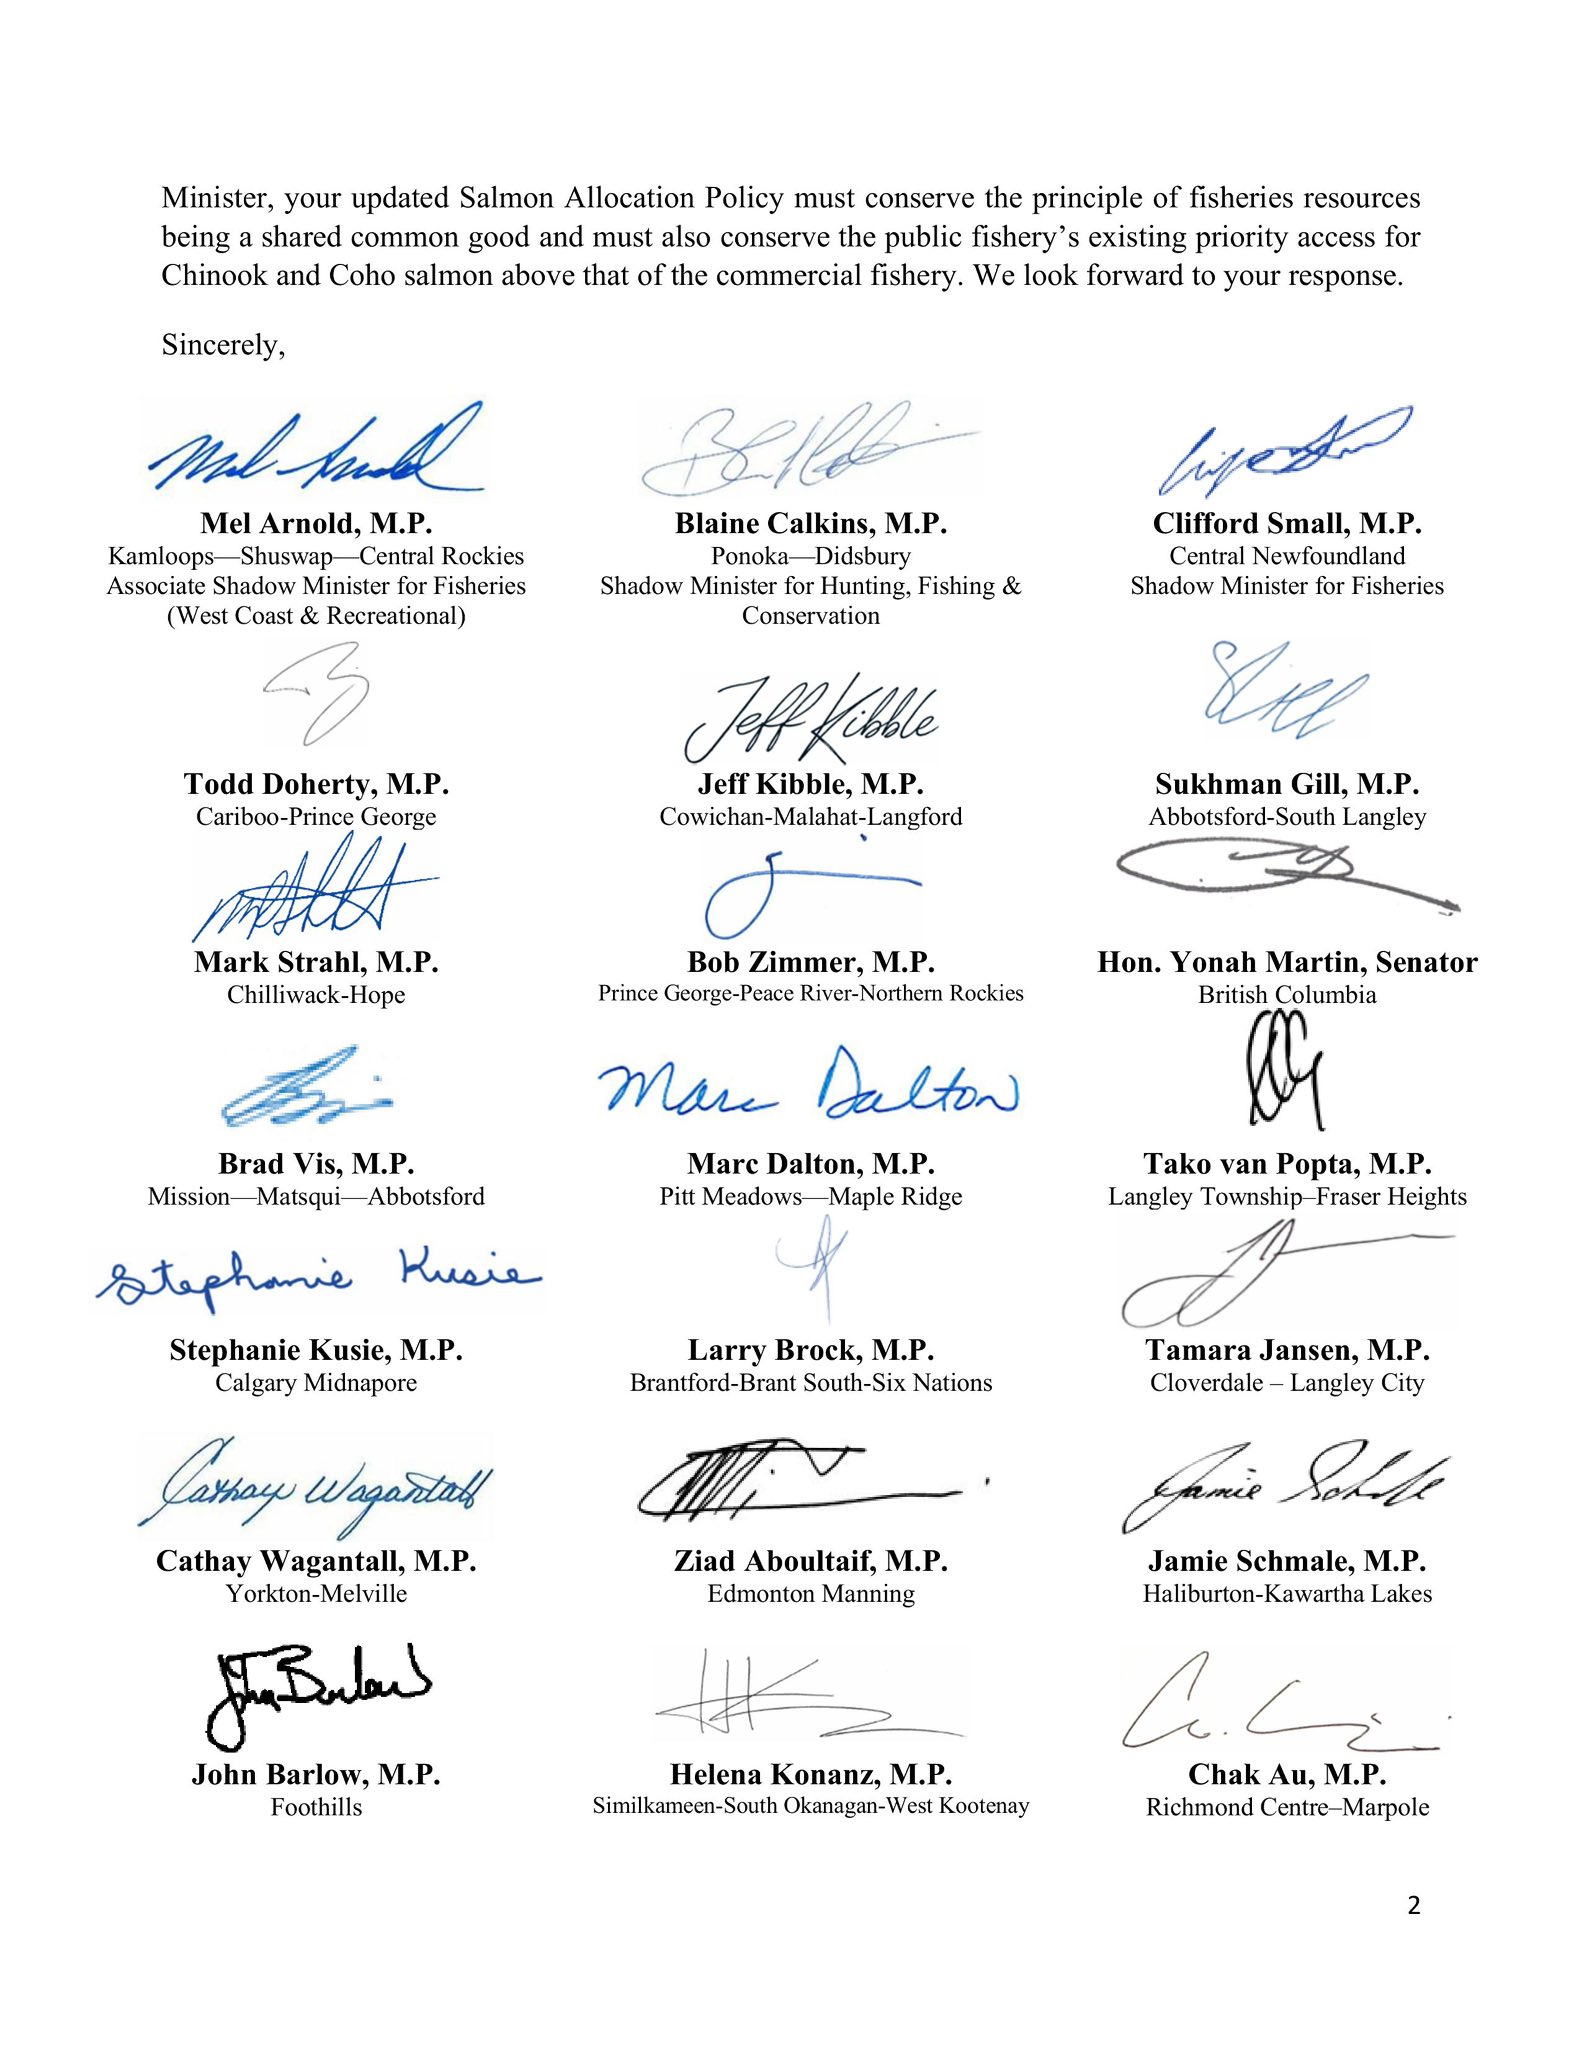 Minister, your updated Salmon Allocation Policy must conserve the principle of fisheries resources
being a shared common good and must also conserve the public fishery’s existing priority access for
Chinook and Coho salmon above that of the commercial fishery. We look forward to your response.
Sincerely,
Mel Arnold
Mel Arnold, M.P.
Kamloops—Shuswap—Central Rockies
Associate Shadow Minister for Fisheries
(West Coast & Recreational)
Blaine Calkins, M.P.
Ponoka—Didsbury
Shadow Minister for Hunting, Fishing &
Conservation
Clifford Small, M.P.
Central Newfoundland
Shadow Minister for Fisheries
Todd Doherty, M.P.
Cariboo-Prince George
Jeff Kibble
Jeff Kibble, M.P.
Cowichan-Malahat-Langford
Sukhman Gill, M.P.
Abbotsford-South Langley
Mark Strahl, M.P.
Chilliwack-Hope
Bob Zimmer, M.P.
Prince George-Peace River-Northern Rockies
Hon. Yonah Martin, Senator
British Columbia
Brad Vis, M.P.
Mission—Matsqui—Abbotsford
Marc Dalton
Marc Dalton, M.P.
Pitt Meadows—Maple Ridge
Tako van Popta, M.P.
Langley Township–Fraser Heights
Stephanie Kusie
Stephanie Kusie, M.P.
Calgary Midnapore
Larry Brock, M.P.
Brantford-Brant South-Six Nations
Tamara Jansen, M.P.
Cloverdale – Langley City
Cathay Wagantall
Cathay Wagantall, M.P.
Yorkton-Melville
Ziad Aboultaif, M.P.
Edmonton Manning
Jamie Schmale
Jamie Schmale, M.P.
Haliburton-Kawartha Lakes
John Barlow
John Barlow, M.P.
Foothills
Helena Konanz, M.P.
Similkameen-South Okanagan-West Kootenay
Chak Au, M.P.
Richmond Centre–Marpole
2